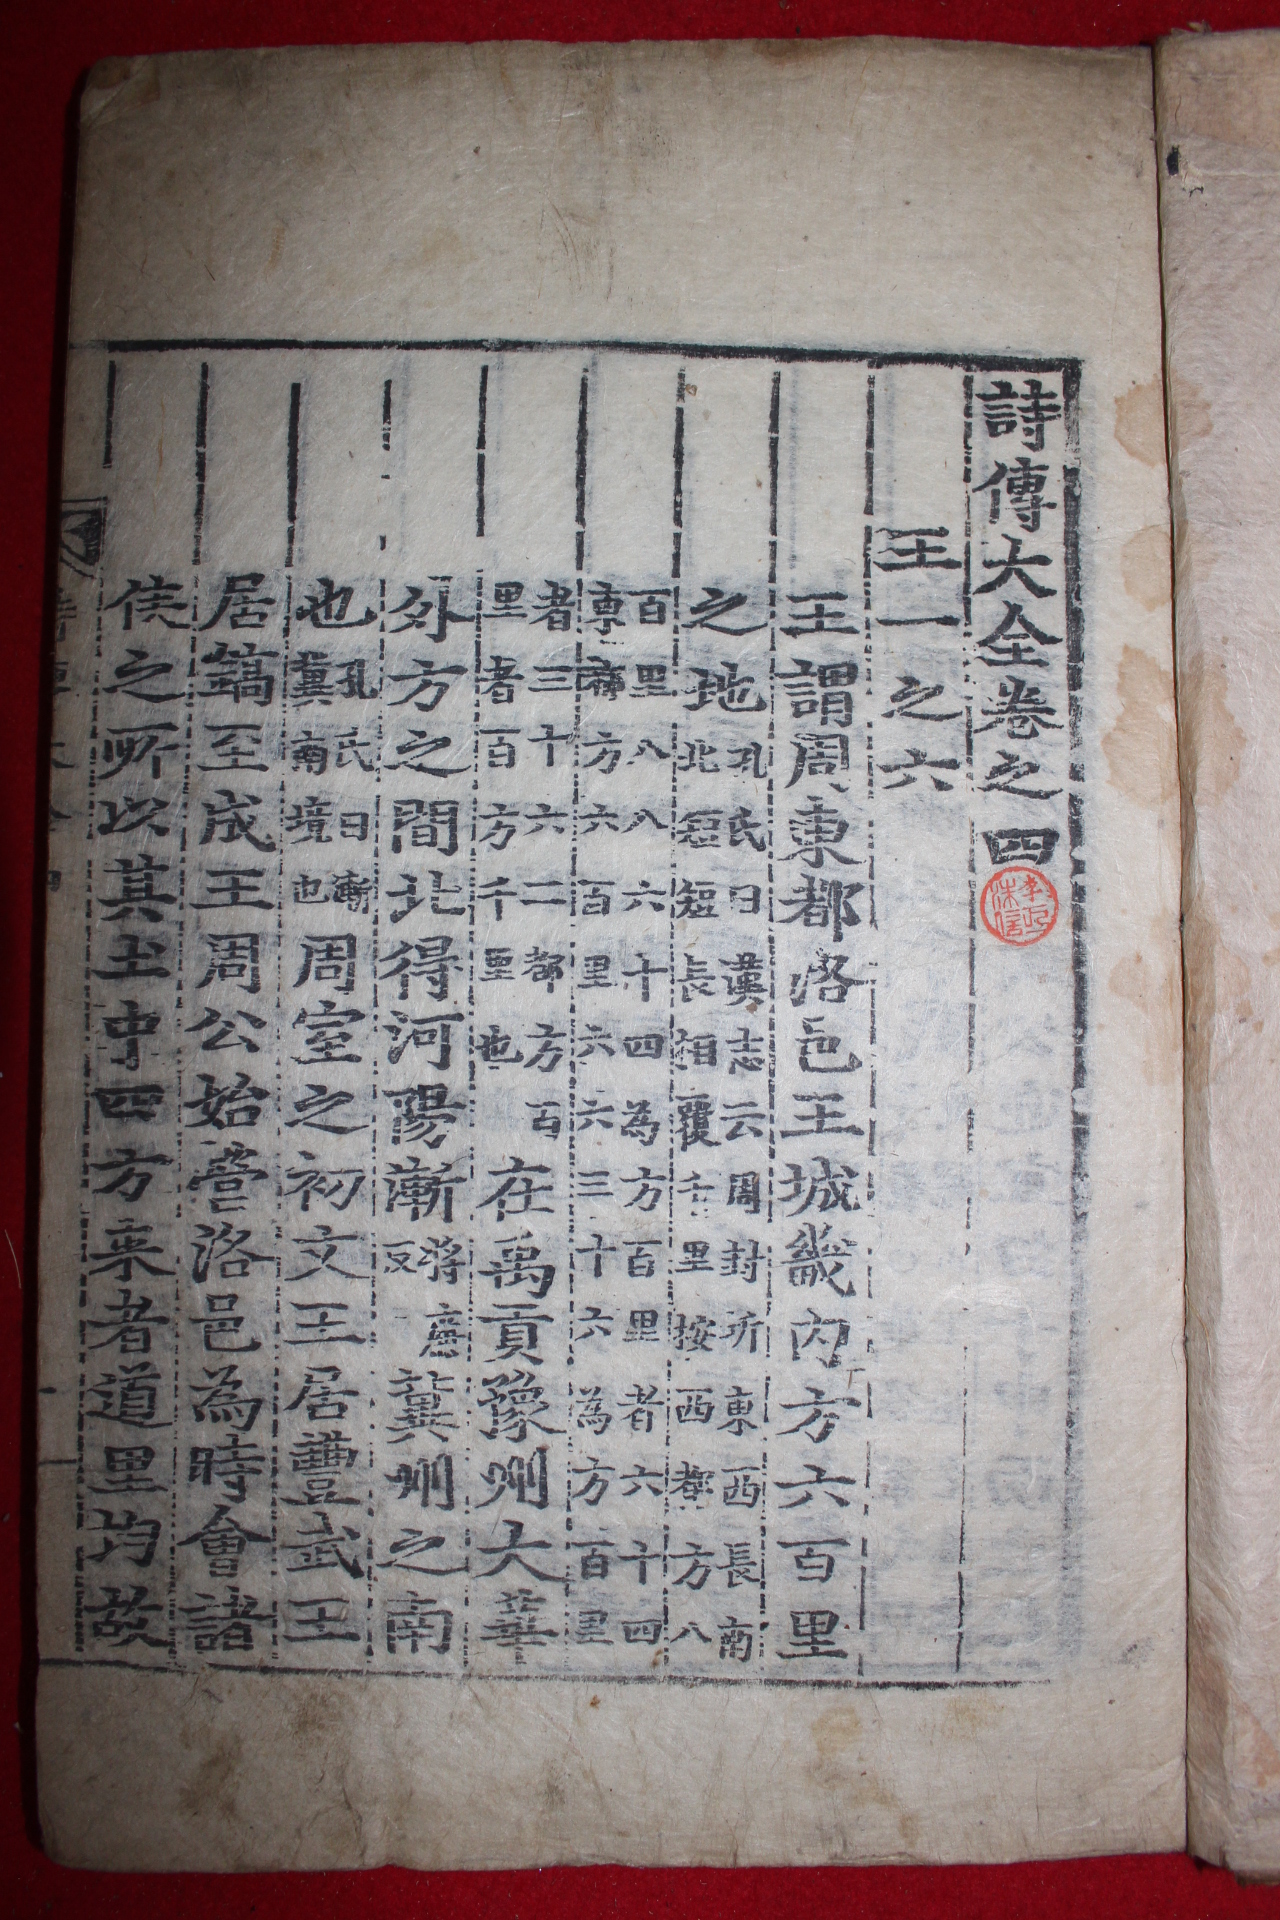 詩傳大全卷之四
王一之六
王謂周東都洛邑王城畿內方六百里
之地孔氏曰漢志云周封圻東西長南
北短短長相覆千里按西都方八
百里八八六十四為方百里者六十四
方六百里六六三十六為方百里
者三十六二都方百
里者百方千里也在禹貢豫州大華
外方之間北得河陽漸將廉反冀州之南
也孔氏曰漸冀南境也周室之初文王居豐武王
居鎬至成王周公始營洛邑為時會諸
侯之所以其土中四方來者道里均故